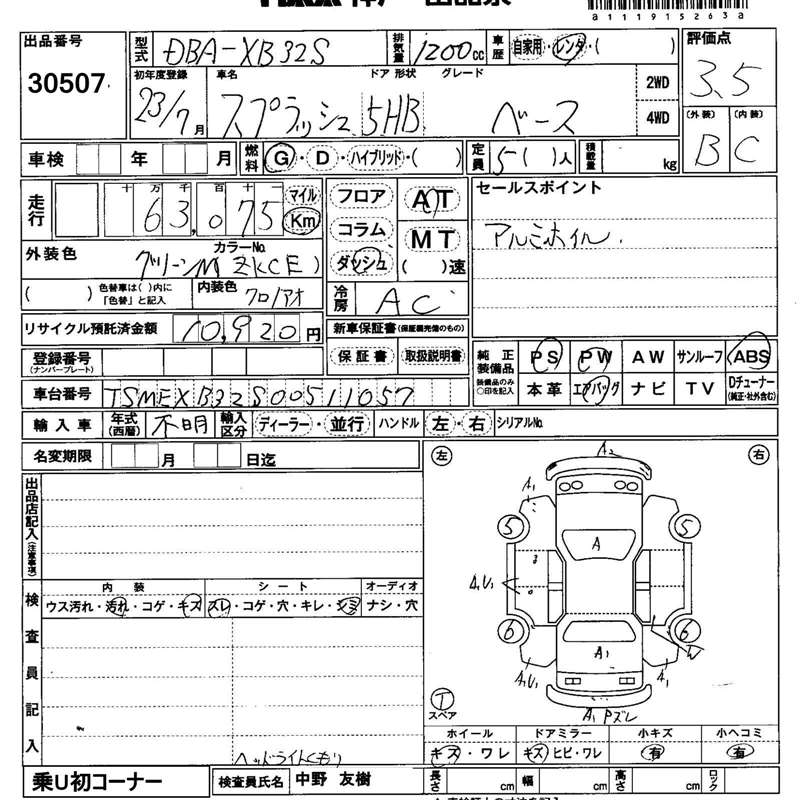 a1119152630a
出品番号 型式 DBA-XB32S 排気量 1200cc 車歴 自家用・レンタ・( ) 評価点
30507 3.5
初年度登録 車名 ドア 形状 グレード
23/7月 スプラッシュ 5HB ベース 2WD 4WD
(外装) (内装)
B C
車検 年 月 燃料 G・D・ハイブリッド・( ) 定員 5( )人 積載量 kg
走行 十 万 千 百 十 マイル Km
63,075
フロア コラム ダッシュ
AT MT ( )速
セールスポイント
アルミホイル.
外装色 カラーNo.
グリーンM ZKCE )
( ) 色替車は( )内に「色替」と記入 内装色 クロ/アオ
冷房 AC
リサイクル預託済金額 10,920円
新車保証書(保証継続他のもの)
保証書 取扱説明書
登録番号
(ナンバープレート)
純正装備品 PS PW AW サンルーフ ABS
装備品のみ〇印を記入 本革 エアバッグ ナビ TV Dチューナー
(純正・社外含む)
車台番号 TSMEXB32S00511057
輸入車 年式(西暦) 不明 輸入区分 ディーラー・並行 ハンドル 左・右 シリアルNo.
名変期限 月 日迄
左 右
出品店記入(注意事項)
A2
A1
5 5
A
A,U1
6 6
A1
W
A,U1
A1
A1 Pズレ
T
スペア
検査員記入
内装 シート オーディオ
ウス汚れ・汚れ・コゲ・キズ ズレ・コゲ・穴・キレ・シミ ナシ・穴
ヘッドライトくもり
ホイール ドアミラー 小キズ 小ヘコミ
キズ・ワレ キズ・ヒビ・ワレ 有 有
乗U初コーナー 検査員氏名 中野 友樹 長さ cm 幅 cm 高さ cm ロック